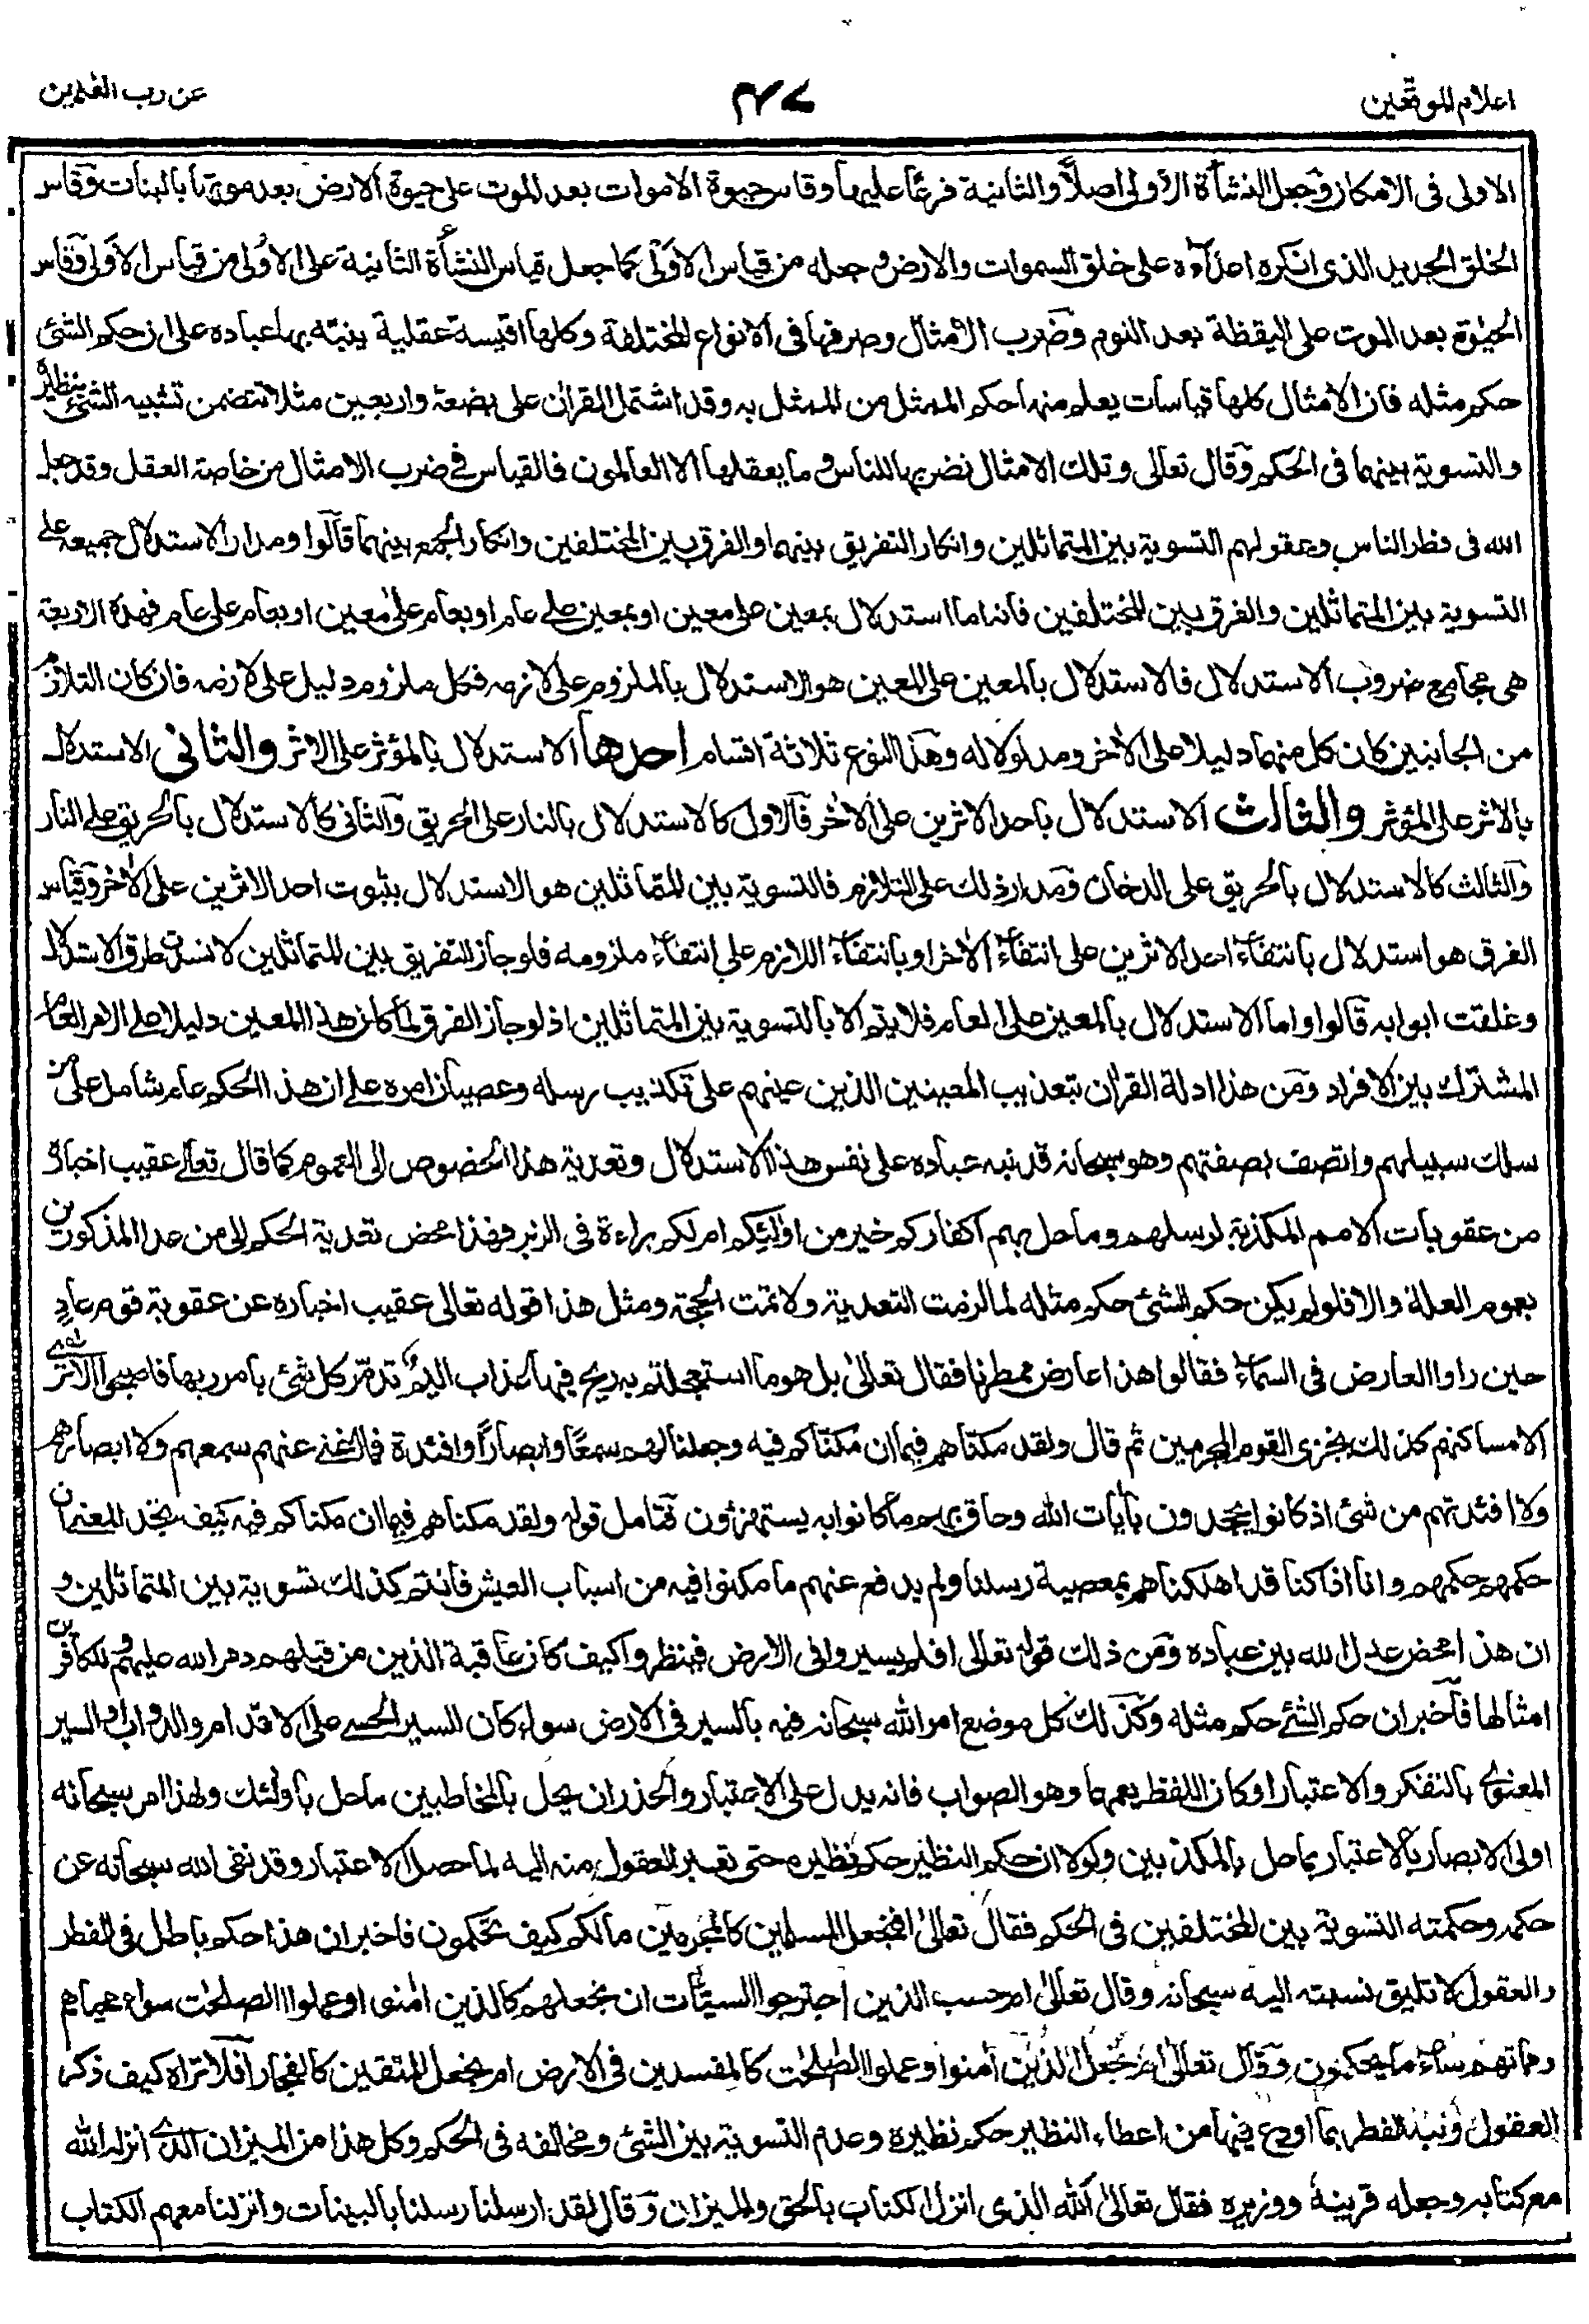 اعلام الموقعين
٤٧
عن رب العلمين
الاولى فى الامكان وجعل النشأة الاولى اصلاً والثانية فرعًا عليها وقاس حيوة الاموات بعد الموت على حيوة الارض بعد موتها بالنبات وقاس
الخلق الجديد الذى انكره اعداءه على خلق السموات والارض وجعله من قياس الاولى كما جعل قياس النشأة الثانية على الاولى من قياس الاولى وقاس
الحيوة بعد الموت على اليقظة بعد النوم وضرب الامثال وصرفها فى الانواع المختلفة وكلها اقيسة عقلية ينبّه بها عباده على ان حكم الشئ
حكم مثله فان الامثال كلها قياسات يعلم منها حكم الممثل من الممثل به وقد اشتمل القران على بضعة واربعين مثلا تتضمن تشبيه الشئ بنظيره
والتسوية بينهما فى الحكم وقال تعالى وتلك الامثال نضربها للناس وما يعقلها الا العالمون فالقياس فے ضرب الامثال من خاصة العقل وقد جعل
الله فى فطر الناس وعقولهم التسوية بين المتماثلين وانكار التفريق بينهما والفرق بين المختلفين وانكار الجمع بينهما قالوا ومدار الاستدلال جميعه علے
التسوية بين المتماثلين والفرق بين المختلفين فانه اما استدلال بمعين على معين او بمعين علے عام او بعام على معين او بعام على عام فهذه الاربعة
هى مجامع ضروب الاستدلال فالاستدلال بالمعين على المعين هو الاستدلال بالملزوم على لازمه فكل ملزوم دليل على لازمه فان كان التلازم
من الجانبين كان كل منهما دليلا على الاخر ومدلولا له وهذا النوع ثلاثة اقسام احدها الاستدلال بالمؤثر على الاثر والثانى الاستدلال
بالاثر على المؤثر والثالث الاستدلال باحد الاثرين على الاخر فالاول كالاستدلال بالنار على الحريق والثانى كالاستدلال بالحريق على النار
والثالث كالاستدلال بالحريق على الدخان ومدار ذلك على التلازم فالتسوية بين المتماثلين هو الاستدلال بثبوت احد الاثرين على الاخر وقياس
الفرق هو استدلال بانتفاء احد الاثرين على انتفاء الاخر او بانتفاء اللازم على انتفاء ملزومه فلو جاز التفريق بين المتماثلين لانسدت طرق الاستدلال
وغلقت ابوابه قالوا واما الاستدلال بالمعين على العام فلا يتم الا بالتسوية بين المتماثلين اذ لو جاز الفرق لما كان هذا المعين دليلا على الامر العام
المشترك بين الافراد ومن هذا ادلة القران بتعذيب المعينين الذين عينهم على تكذيب رسله وعصيان امره علے ان هذا الحكم عام شامل على من
سلك سبيلهم واتصف بصفتهم وهو سبحانه قد نبه عباده على نفس هذا الاستدلال وتعدية هذا الخصوص الى العموم كما قال تعالے عقيب اخباره
من عقوبات الامم المكذبة لرسلهم وما حل بهم اكفاركم خير من اولئكم ام لكم براءة فى الزبر فهذا محض تعدية الحكم الى من عدا المذكورين
بعموم العلة والا فلو لم يكن حكم الشئ حكم مثله لما لزمت التعدية ولا تمت الحجة ومثل هذا قوله تعالى عقيب اخباره عن عقوبة قوم عادٍ
حين راوا العارض فى السماء فقالوا هذا عارض ممطرنا فقال تعالى بل هو ما استعجلتم به ريح فيها عذاب اليم تدمّر كل شئ بامر ربها فاصبحوا لا ترى
الا مساكنهم كذلك نجزى القوم المجرمين ثم قال ولقد مكناهم فيما ان مكناكم فيه وجعلنا لهم سمعًا وابصارًا وافئدة فما اغنى عنهم سمعهم ولا ابصارهم
ولا افئدتهم من شئ اذ كانوا يجحدون بايات الله وحاق بهم ما كانوا به يستهزؤن فتامل قوله ولقد مكناهم فيما ان مكناكم فيه كيف تجد المعنى ان
حكمهم حكمهم وانا اذا كنا قد اهلكناهم بمعصية رسلنا ولم يدفع عنهم ما مكنوا فيه من اسباب العيش فانتم كذلك تسوية بين المتماثلين و
ان هذا محض عدل الله بين عباده ومن ذلك قوله تعالى افلم يسيروا فى الارض فينظروا كيف كان عاقبة الذين من قبلهم دمر الله عليهم وللكافرين
امثالها فاخبر ان حكم الشئے حكم مثله وكذلك كل موضع امر الله سبحانه فيه بالسير فى الارض سواء كان السير الحسے على الاقدام والدواب او السير
المعنوى بالتفكر والاعتبار او كان اللفظ يعمهما وهو الصواب فانه يدل على الاعتبار والحذر ان يحل بالمخاطبين ما حل باولئك ولهذا امر سبحانه
اولى الابصار بالاعتبار بما حل بالمكذبين ولولا ان حكم النظير حكم نظيره حتى تعبر العقول منه اليه لما حصل الاعتبار وقد نفى الله سبحانه عن
حكمه وحكمته التسوية بين المختلفين فى الحكم فقال تعالى افنجعل المسلمين كالمجرمين مالكم كيف تحكمون فاخبر ان هذا حكم باطل فى الفطر
والعقول لا تليق نسبته اليه سبحانه وقال تعالى ام حسب الذين اجترحوا السيئات ان نجعلهم كالذين امنوا وعملوا الصلحات سواء محياهم
ومماتهم ساء ما يحكمون وقال تعالى ام نجعل الذين امنوا وعملوا الصلحت كالمفسدين فى الارض ام نجعل المتقين كالفجار افلا تراه كيف ذكر
العقول ونبه الفطر بما اودع فيها من اعطاء النظير حكم نظيره وعدم التسوية بين الشئ ومخالفه فى الحكم وكل هذا من الميزان الذى انزله الله
مع كتابه وجعله قرينه ووزيره فقال تعالى الله الذى انزل الكتاب بالحق والميزان وقال لقد ارسلنا رسلنا بالبينات وانزلنا معهم الكتاب